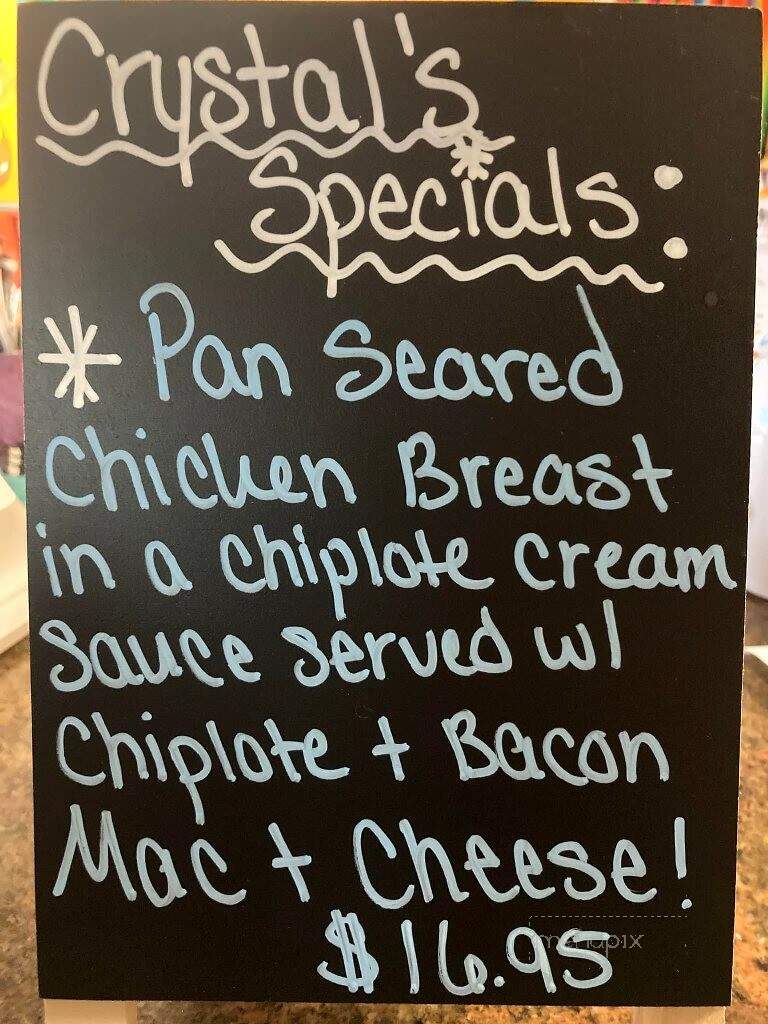 Crystal's
Specials:
* Pan Seared
Chicken Breast
in a chiplote cream
sauce served w/
Chiplote + Bacon
Mac + Cheese!
$16.95
menupix